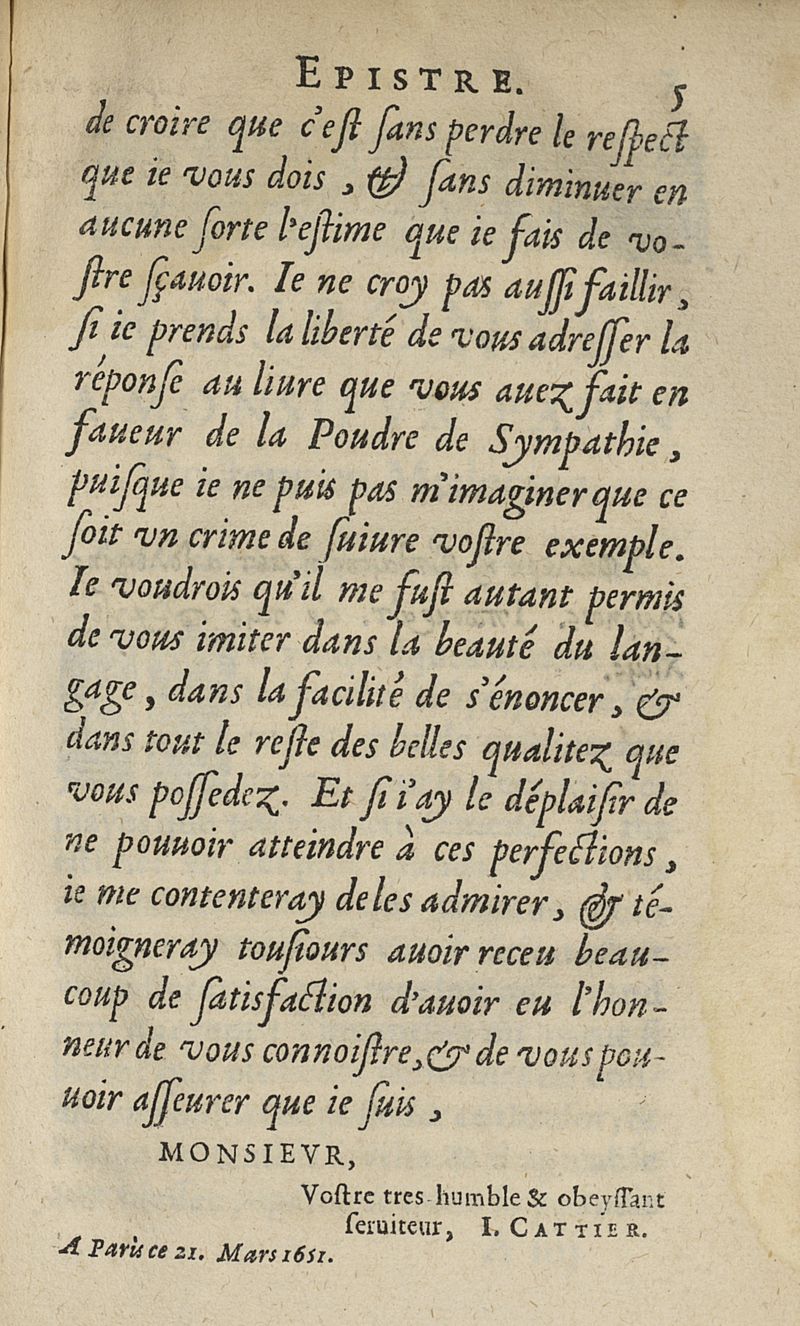 EPISTRE.
5
de croire que c'eſt ſans perdre le reſpect
que ie vous dois, & ſans diminuer en
aucune ſorte l'eſtime que ie fais de vo-
ſtre ſçauoir. Ie ne croy pas auſſi faillir,
ſi ie prends la liberté de vous adreſſer la
réponſe au liure que vous auez fait en
faueur de la Poudre de Sympathie,
puiſque ie ne puis pas m'imaginer que ce
ſoit vn crime de ſuiure voſtre exemple.
Ie voudrois qu'il me fuſt autant permis
de vous imiter dans la beauté du lan-
gage, dans la facilité de s'énoncer, &
dans tout le reſte des belles qualitez que
vous poſſedez. Et ſi i'ay le déplaiſir de
ne pouuoir atteindre à ces perfections,
ie me contenteray de les admirer, & té-
moigneray touſiours auoir receu beau-
coup de ſatisfaction d'auoir eu l'hon-
neur de vous connoiſtre, & de vous pou-
uoir aſſeurer que ie ſuis,
MONSIEVR,
Voſtre tres-humble & obeyſſant
ſeruiteur, I. CATTIER.
A Paris ce 21. Mars 1651.